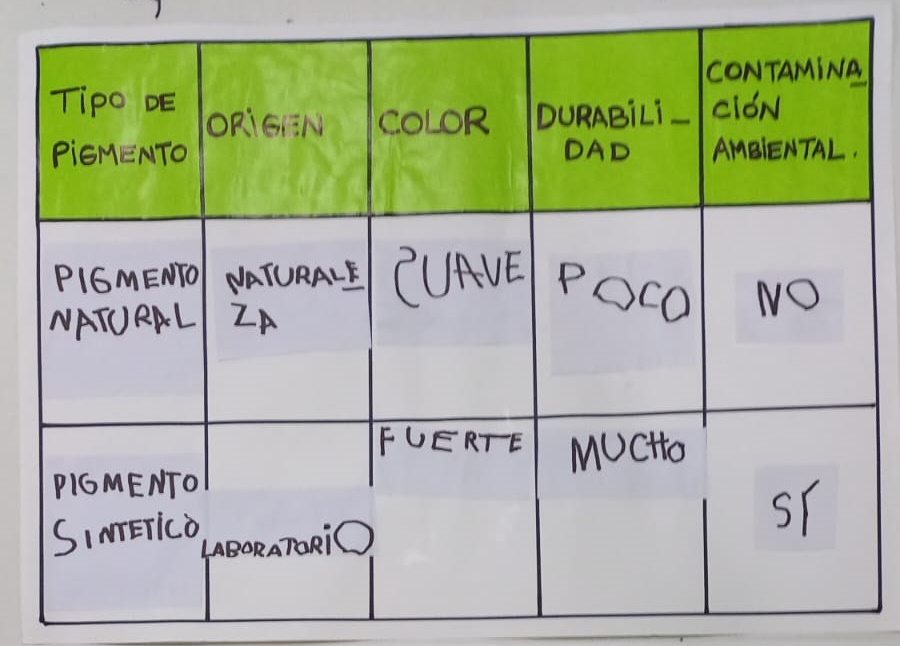 TIPO DE
PIGMENTO
ORIGEN
COLOR
DURABILI-
DAD
CONTAMINA
CIÓN
AMBIENTAL.
PIGMENTO
NATURAL
NATURALE
ZA
CUAVE
POCO
NO
PIGMENTO
SINTETICO
LABORATORIO
FUERTE
MUCHO
SÍ